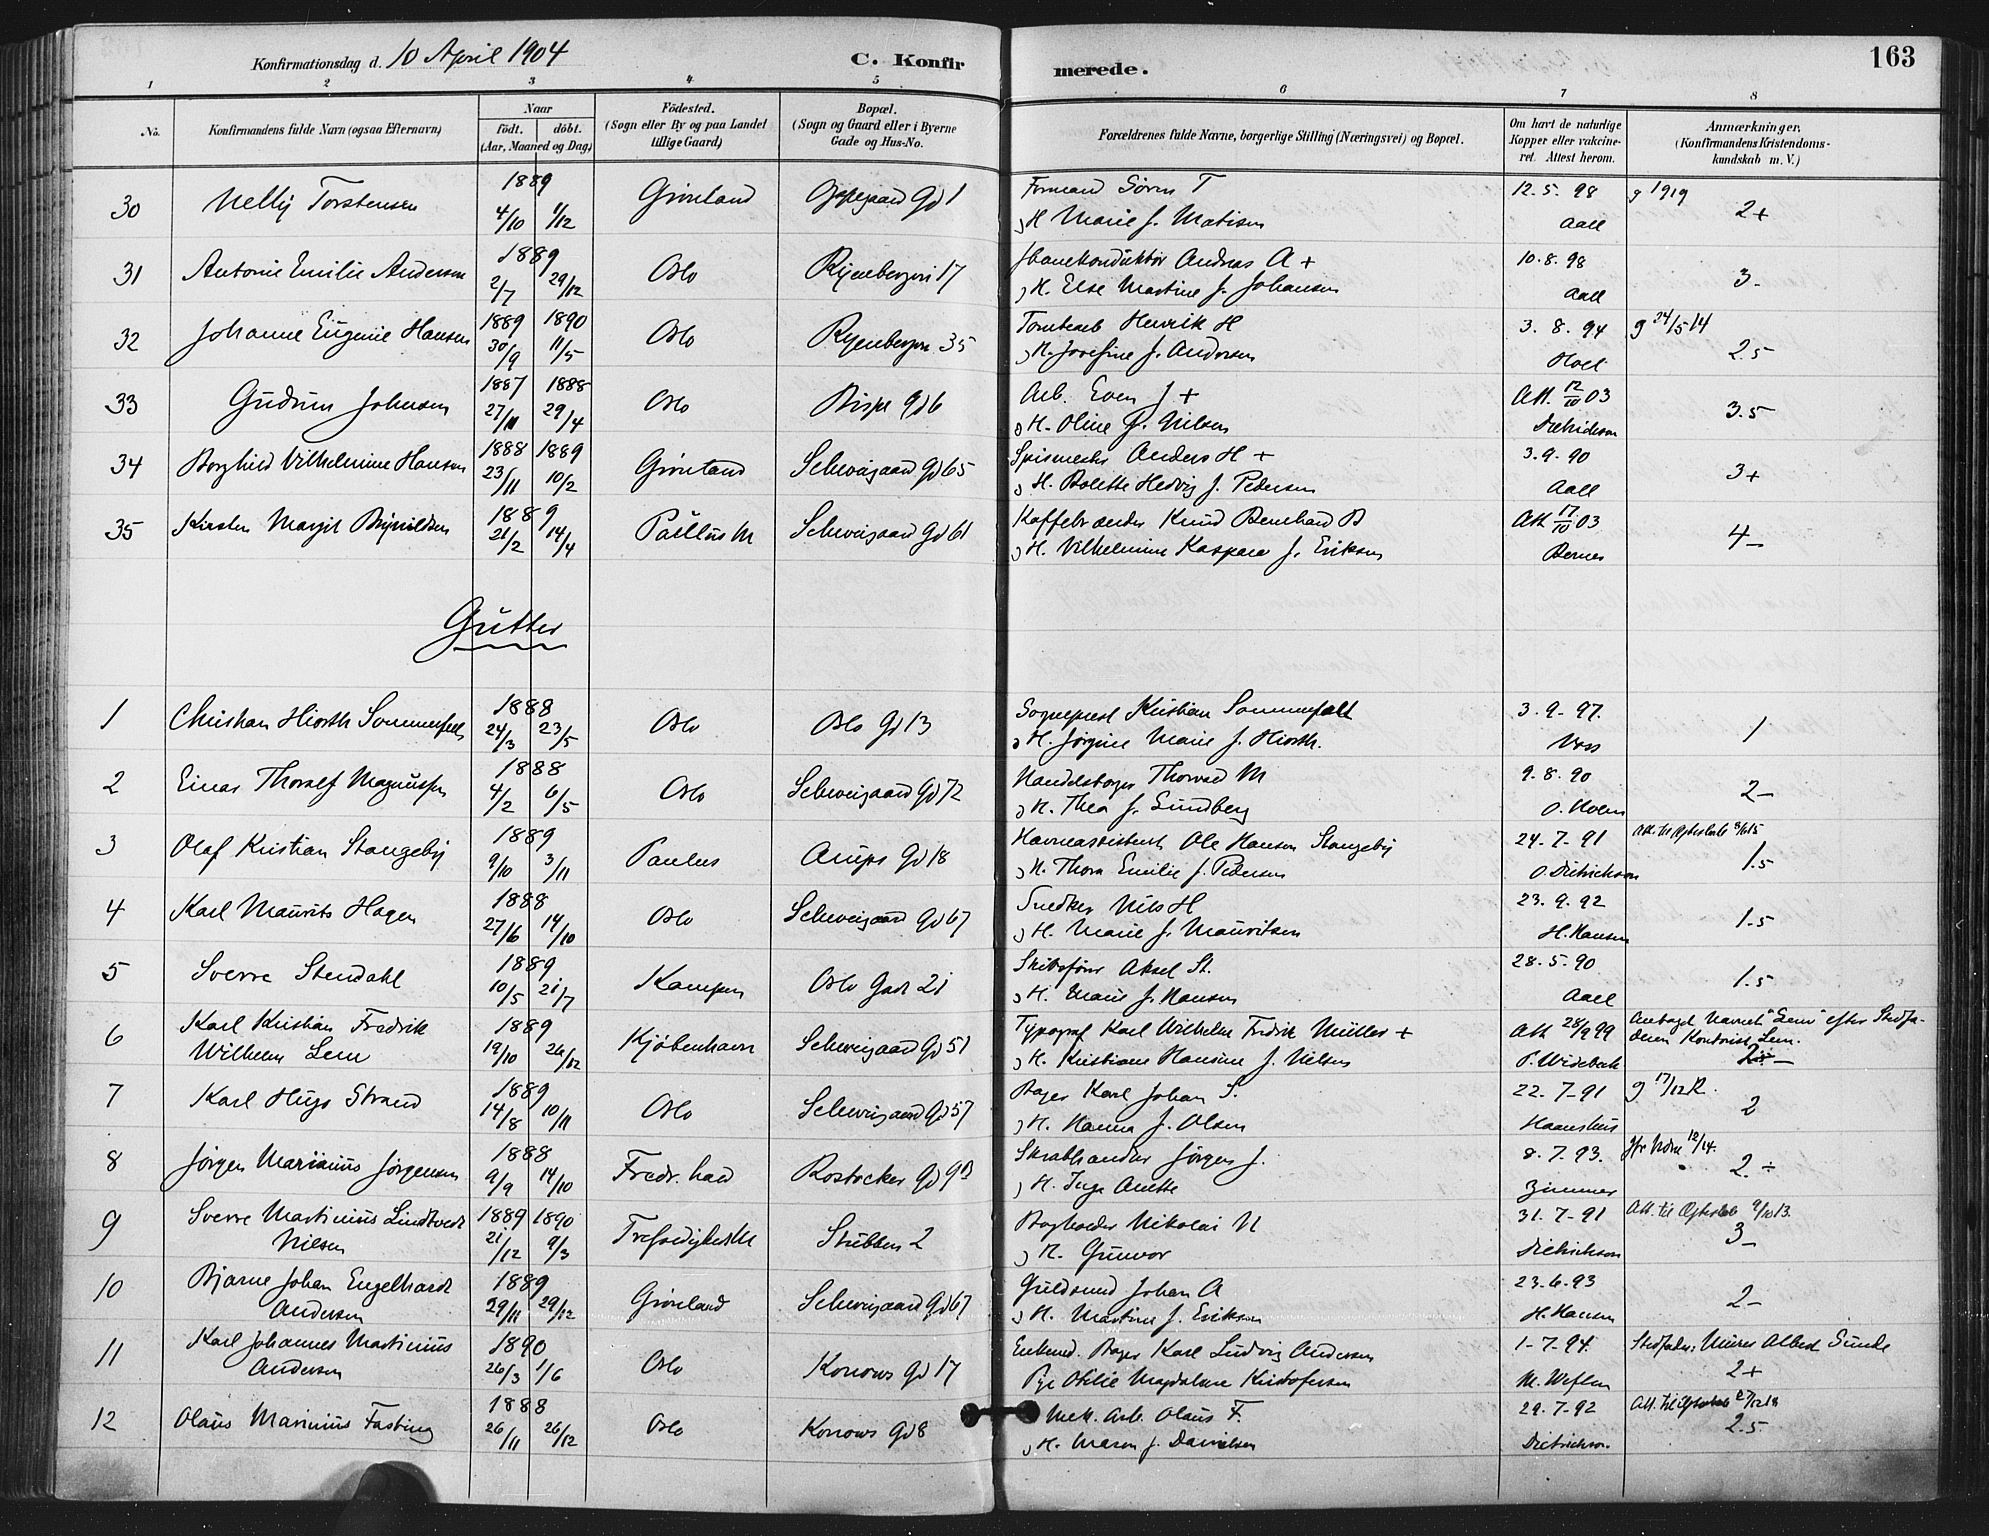 Konfirmationsdag d. 10 April 1904 C. Konfirmerede. 163
1 2 3 4 5 6 7 8
No. Konfirmandens fulde Navn (ogsaa Efternavn) Naar født. døbt. (Aar, Maaned og Dag) Fødested. (Sogn eller By og paa Landet tillige Gaard) Bopæl. (Sogn og Gaard eller i Byerne Gade og Hus-No. Forældrenes fulde Navne, borgerlige Stilling (Næringsvei) og Bopæl. Om havt de naturlige Kopper eller vakcineret. Attest herom. Anmærkninger. (Konfirmandens Kristendomskundskab m. V.)
30 Nelly Torstensen 1889 4/10 1/12 Grønland Oppegaard Gd 1 Formand Søren T 12.5.98 g 1919
H. Marie f. Matisen Aall 2+
31 Antonie Emilie Andersen 1889 2/7 29/12 Oslo Ryenbergvn 17 Andreas A + 10.8.98
H. Else Martine f. Johansen Aall 3-
32 Johanne Eugenie Hansen 1889 30/9 1890 11/5 Oslo Ryenbergvn 35 Tomtearb Henrik H 3.8.94 g 24/5 14
H. Josefine f. Andersen Hoel 2.5
33 Gudrun Johnsen 1887 27/11 1888 29/4 Oslo Bispe Gd 6 Arb. Even J + Att. 12/10 03
H. Oline f. Nilsen Dietrichson 3.5
34 Borghild Vilhelmine Hansen 1888 23/11 1889 10/2 Grønland Schweigaard Gd 65 Anders H + 3.9.90
H. Bolette Hedvig f. Pedersen Aall 3+
35 Kirsten Margit Brynildsen 1889 21/2 14/4 Paulus M Schweigaard Gd 61 Kaffebrænder Knud Bernhard B Att 17/10 03
H. Vilhelmine Kaspara f. Eriksen Berner 4-
Gutter
1 Christian Hiorth Sommerfelt 1888 24/3 23/5 Oslo Oslo Gd 13 Sogneprest Kristian Sommerfelt 3.9.97.
H. Jørgine Marie f. Hiorth. Voss 1
2 Einar Thoralf Magnussen 1888 4/2 6/5 Oslo Schweigaard Gd 72 Handelsborger Thorvald M 9.8.90
H. Thea f. Sundberg O. Holm 2-
3 Olaf Kristian Stangeby 1889 9/10 3/11 Paulus Arups Gd 18 Havneassistent Ole Hansen Stangeby 24.7-91
H. Thora Emilie f. Pedersen O. Dietrichson 1.5
4 Karl Maurits Hagen 1888 27/6 14/10 Oslo Schweigaard Gd 67 Snedker Nils H 23.9.92
H. Marie f. Mauritsen H. Hansen 1.5
5 Sverre Stendahl 1889 10/5 21/7 Kampen Oslo Gade 21 Skibsfører Aksel St. 28.5.90
H. Marie f. Hansen Aall 1.5
6 Karl Kristian Fredrik 1889 19/10 26/12 Kjøbenhavn Schweigaard Gd 51 Typograf Karl Wilhelm Fredrik Müller + Att 28/9 99 Antaget Navnet "Lem" efter Stedfa-
Wilhelm Lem H. Kristiane Hansine f. Nielsen P. Widebeck deren Kontorist Lem.
7 Karl Hugo Strand 1889 14/8 10/11 Oslo Schweigaard Gd 57 Bager Karl Johan S. 22.7-91
H. Hanna f. Olsen Haanshus 2
8 Jørgen Marinius Jørgensen 1888 9/9 14/10 Fredr. hald Rostocker Gd 9B Skrabhandler Jørgen J. 8.7.93.
H. Inga Anette Zimmer 2-
9 Sverre Martinius Lindtvedt 1889 21/12 1890 9/3 TrefoldighedsM Stubben 2 Bogholder Nikolai N 31.7-91
Nilsen H. Gunvor Dietrichson 3-
10 Bjarne Johan Engelhardt 1889 29/11 29/12 Grønland Schweigaard Gd 67 Guldsmed Johan A 23.6.93
Andersen H. Martine f. Eriksen H. Hansen 2-
11 Karl Johannes Martinius 1890 26/3 1/6 Oslo Konows Gd 17 Enkemd. Bager Karl Ludvig Andersen 1-7.94 Stedfader: Murer Albert Sunde
Andersen Pige Otilie Magdalene Kristofersen 2+
12 Olaus Marinius Fasting 1888 26/11 26/12 Oslo Konows Gd 8 Mek. Arb. Olaus F. 29.7-92
H. Maren f. Danielsen Dietrichson. 2.5